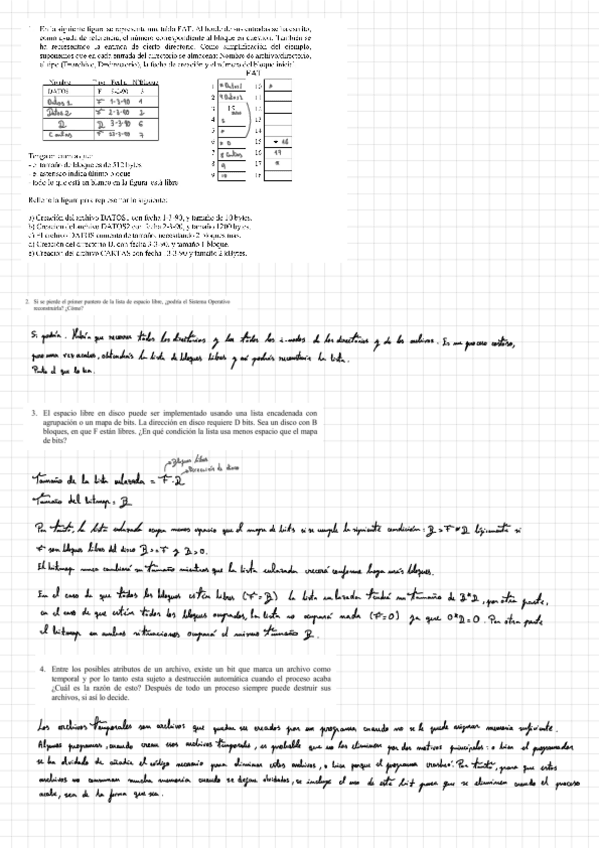 1. En la siguiente figura se representa una tabla FAT. Al borde de sus entradas se ha escrito,
como ayuda de referencia, el número correspondiente al bloque en cuestión. También se
ha representado la entrada de cierto directorio. Como simplificación del ejemplo,
suponemos que en cada entrada del directorio se almacena: Nombre de archivo/directorio,
el tipo (F=archivo, D=directorio), la fecha de creación y el número del bloque inicial.
FAT
Nombre Tipo Fecha NºBloque
DATOS F 8-2-90 3
Datos 1 F 1-3-90 1
Datos 2 F 2-3-90 2
D D 3-3-90 6
Cartas F 13-3-90 7
Tenga en cuenta que:
- el tamaño de bloque es de 512 bytes
- el asterisco indica último bloque
- todo lo que está en blanco en la figura está libre.
Rellene la figura para representar lo siguiente:
a) Creación del archivo DATOS1 con fecha 1-3-90, y tamaño de 10 bytes.
b) Creación del archivo DATOS2 con fecha 2-3-90, y tamaño 1200 bytes.
c) El archivo DATOS aumenta de tamaño, necesitando 2 bloques más.
d) Creación del directorio D, con fecha 3-3-90, y tamaño 1 bloque.
e) Creación del archivo CARTAS con fecha 13-3-90 y tamaño 2 kBytes.
2. Si se pierde el primer puntero de la lista de espacio libre, ¿podría el Sistema Operativo
reconstruirla? ¿Cómo?
Si podría. Habría que recorrer todos los directorios y los todos los i-nodos de los directorios y de los archivos. Es un proceso costoso,
pero una vez acabas, obtendrás la lista de bloques libres y así podrás reconstruir la lista.
3. El espacio libre en disco puede ser implementado usando una lista encadenada con
agrupación o un mapa de bits. La dirección en disco requiere D bits. Sea un disco con B
bloques, en que F están libres. ¿En qué condición la lista usa menos espacio que el mapa
de bits?
Bloques libres
Dirección de disco
Tamaño de la lista enlazada = F·D
Tamaño del bitmap = B
Por tanto, la lista enlazada ocupa menos espacio que el mapa de bits si se cumple la siguiente condición: B > F * D
F son bloques libres del disco B >= F y D > 0.
El bitmap nunca cambiará su tamaño mientras que la lista enlazada crecerá conforme haya más bloques.
En el caso de que todos los bloques estén libres (F=B) la lista enlazada tendrá un tamaño de B*D, por otra parte,
en el caso de que estén todos los bloques ocupados, la lista no ocupará nada (F=0) ya que 0*D=0. Por otra parte
el bitmap en ambas situaciones ocupará el mismo tamaño B.
4. Entre los posibles atributos de un archivo, existe un bit que marca un archivo como
temporal y por lo tanto esta sujeto a destrucción automática cuando el proceso acaba
¿Cuál es la razón de esto? Después de todo un proceso siempre puede destruir sus
archivos, si así lo decide.
Los archivos temporales son archivos que pueden ser creados por un programa cuando no se le puede asignar memoria suficiente.
Algunos programas, cuando crean esos archivos temporales, es probable que no los eliminen por dos motivos principales: o bien el programador
se ha olvidado de añadir el código necesario para eliminar estos archivos, o bien porque el programa crasheó. Por tanto, para que estos
archivos no consuman mucha memoria cuando se dejan olvidados, se incluye el uso de este bit para que se eliminen cuando el proceso
acabe, sea de la forma que sea.